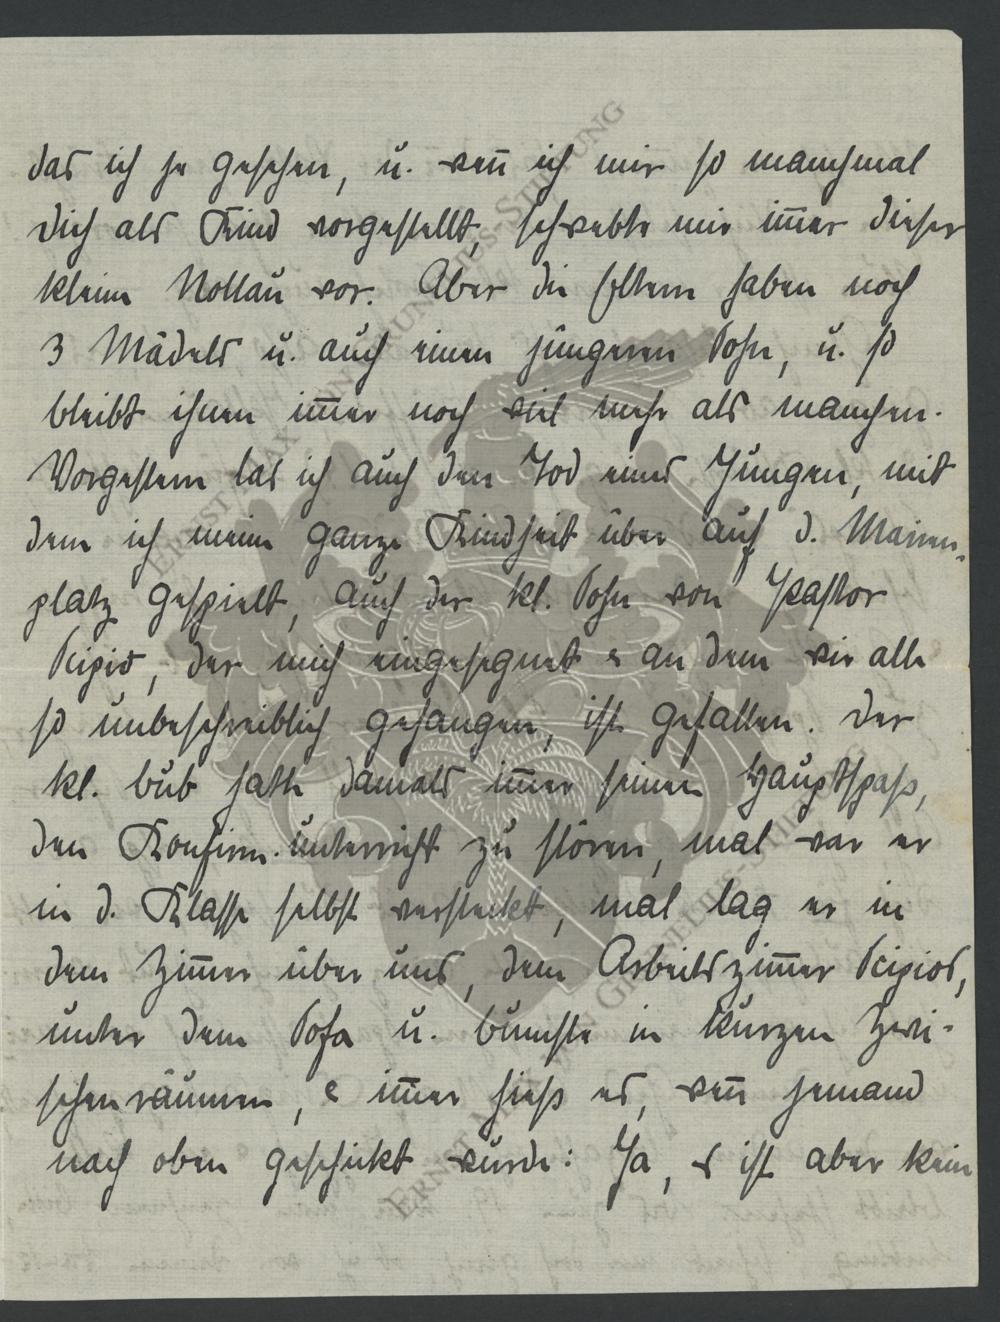 das ich je gesehen, u. weñ ich mir so manchmal
Dich als Kind vorgestellt, schwebte mir im̃er dieser
kleine Nollau vor. Aber die Eltern haben noch
3 Mädels u. auch einen jüngeren Sohn, u. so
bleibt ihnen im̃er noch viel mehr als manchen.
Vorgestern las ich auch den Tod eines Jungen, mit
dem ich meine ganze Kindheit über auf d. Marien-
platz gespielt, auch der kl. Sohn von Pastor
Scipio, der mich eingesegnet & an dem wir alle
so unbeschreiblich gehangen, ist gefallen. Der
kl. Bub hatte damals im̃er seinen Hauptspaß,
den Konfirm. unterricht zu stören, mal war er
in d. Klasse selbst versteckt, mal lag er in
dem Zim̃er über uns, dem Arbeitszim̃er Scipios,
unter dem Sofa u. bumste in kurzen Zwi-
schenräumen, & im̃er hieß es, weñ jemand
nach oben geschickt wurde: Ja, es ist aber kein
ERNST MAX VON GRUNELIUS-STIFTUNG
ERNST MAX VON GRUNELIUS-STIFTUNG